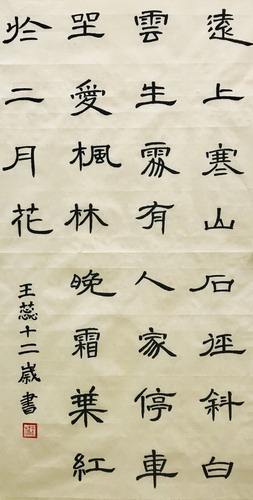 遠上寒山石徑斜白
雲生處有人家停車
坐愛楓林晚霜葉紅
於二月花
王蕊十二歲書